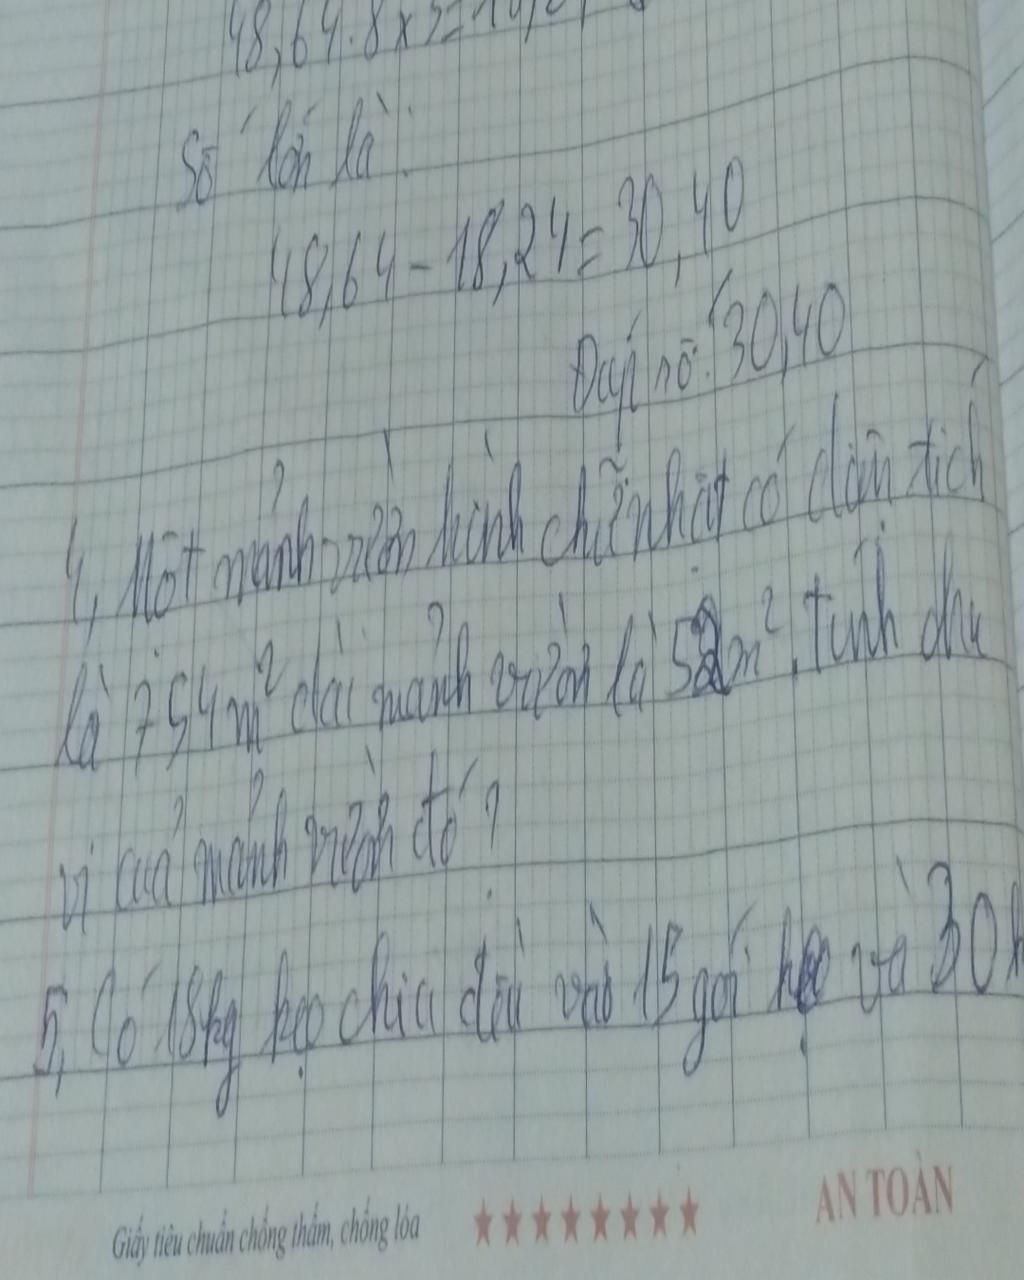 48,64:8x3=
Số lớn là:
48,64-18,24=30,40
Đáp số: 30,40
4, Một mảnh vườn hình chữ nhật có diện tích
là 754m² dài mảnh vườn là 52m², tính chu
vi của mảnh vườn đó?
5, Có 18kg kẹo chia đều vào 15 gói kẹo và 30
Giấy tiêu chuẩn chống thấm, chống lóa ★★★★★★★★ AN TOÀN